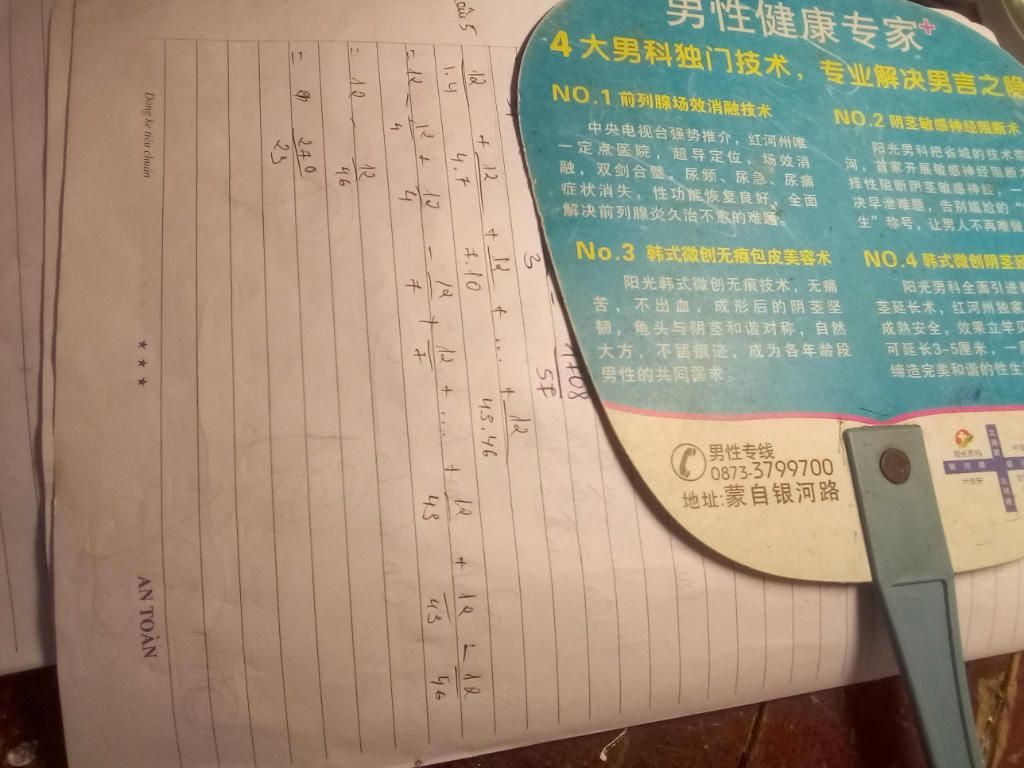 男性健康专家+
4大男科独门技术，专业解决男言之隐
NO.1 前列腺场效消融技术
中央电视台强势推介，红河州唯
一定点医院，超导定位，场效消
融，双剑合璧。尿频、尿急、尿痛
症状消失，性功能恢复良好。全面
解决前列腺炎久治不愈的难题。
NO.2 阴茎敏感神经阻断术
阳光男科把省城的技术带
河，首家开展敏感神经阻断
择性阻断阴茎敏感神经，一
决早泄难题，告别尴尬的“
生”称号，让男人不再难做
No.3 韩式微创无痕包皮美容术
阳光韩式微创无痕技术，无痛
苦，不出血，成形后的阴茎坚
韧，龟头与阴茎和谐对称，自然
大方，不留痕迹，成为各年龄段
男性的共同需求
NO.4 韩式微创阴茎延
阳光男科全面引进
茎延长术，红河州独家
成熟安全，效果立竿见
可延长3-5厘米，一
缔造完美和谐的性生
男性专线
0873-3799700
地址:蒙自银河路
阳光男科
银河路
câu 5
12/1.4 + 12/4.7 + 12/7.10 + ... + 12/43.46
= 12 - 12/4 + 12/4 - 12/7 + 12/7 + ... + 12/43 + 12/43 - 12/46
= 12 - 12/46
= 270/23
3
1708
57
Dòng kẻ tiêu chuẩn
★ ★ ★
AN TOÀN